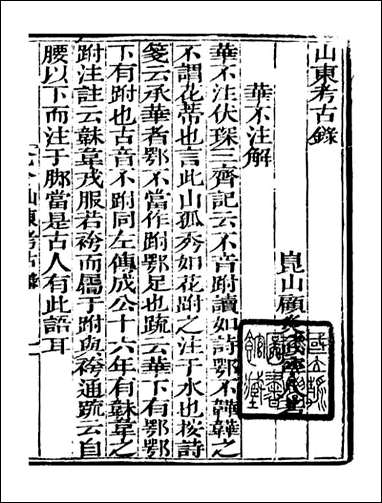 山東考古錄
崑山顧炎
華不注解
華不注伏琛三齊記云不音跗讀如詩鄂不韡韡之
不謂花蒂也言此山孤秀如花跗之注于水也按詩
箋云承華者鄂不當作跗鄂足也疏云華下有鄂鄂
下有跗也古音不跗同左傳成公十六年有韎韋之
跗注註云韎韋戎服若袴而屬于跗與袴通疏云自
腰以下而注于脚當是古人有此語耳
山東考古錄